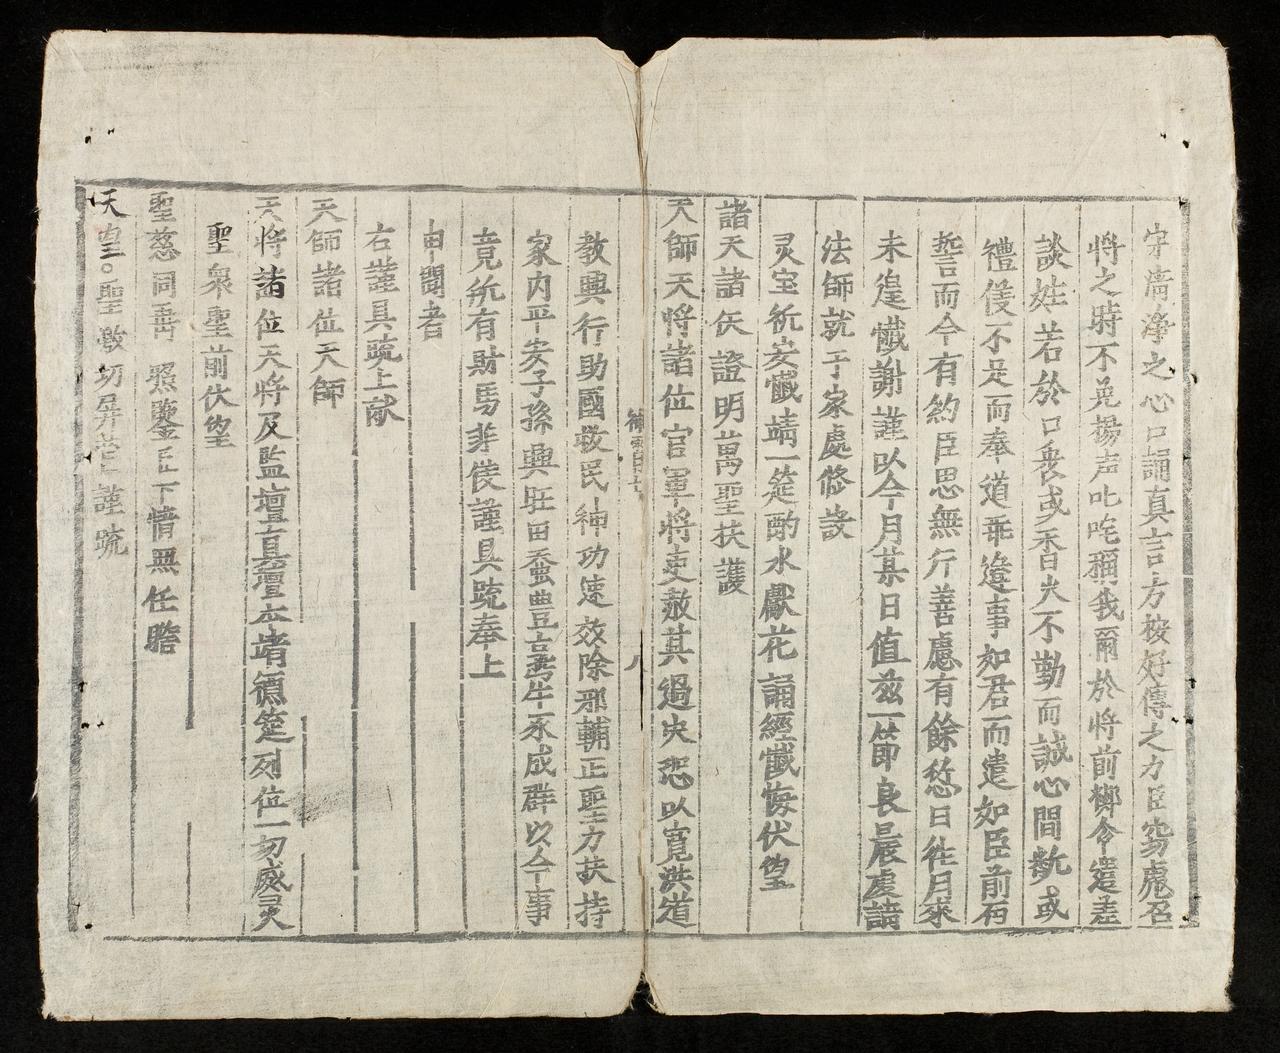 守清淨之心口誦真言方按好傳之力臣窃慮召
将之時不免揚声叱咤稱我爾於将前鄉令遣差
談姓若於口喪或香火不勤而誠心間斷或
禮儀不足而奉道乖違事如君而遣如臣前有
誓而今有約臣思無行善慮有餘愆日往月來
未遑懺謝謹以今月某日值玆一節良晨虔請
法師就于家處修設
灵宝祈安懺靖一筵酌水獻花誦經懺悔伏望
諸天諸仸證明萬聖扶護
天師天将諸位官軍将吏赦其過失恕以寬洪道
八
教興行助國救民神功速效除邪輔正聖力扶持
家内平安子孫興旺田蚕豊吉䏻牛永成群以今事
竟所有財馬䒭儀謹具疏奉上
申聞者
右謹具疏上献
天師諸位天師
天将諸位天将及監壇真壇本靖德筵列位一切威灵
聖衆聖前伏望
聖慈同垂 照鑒臣下情無任瞻
天皇。聖激切屏營謹疏